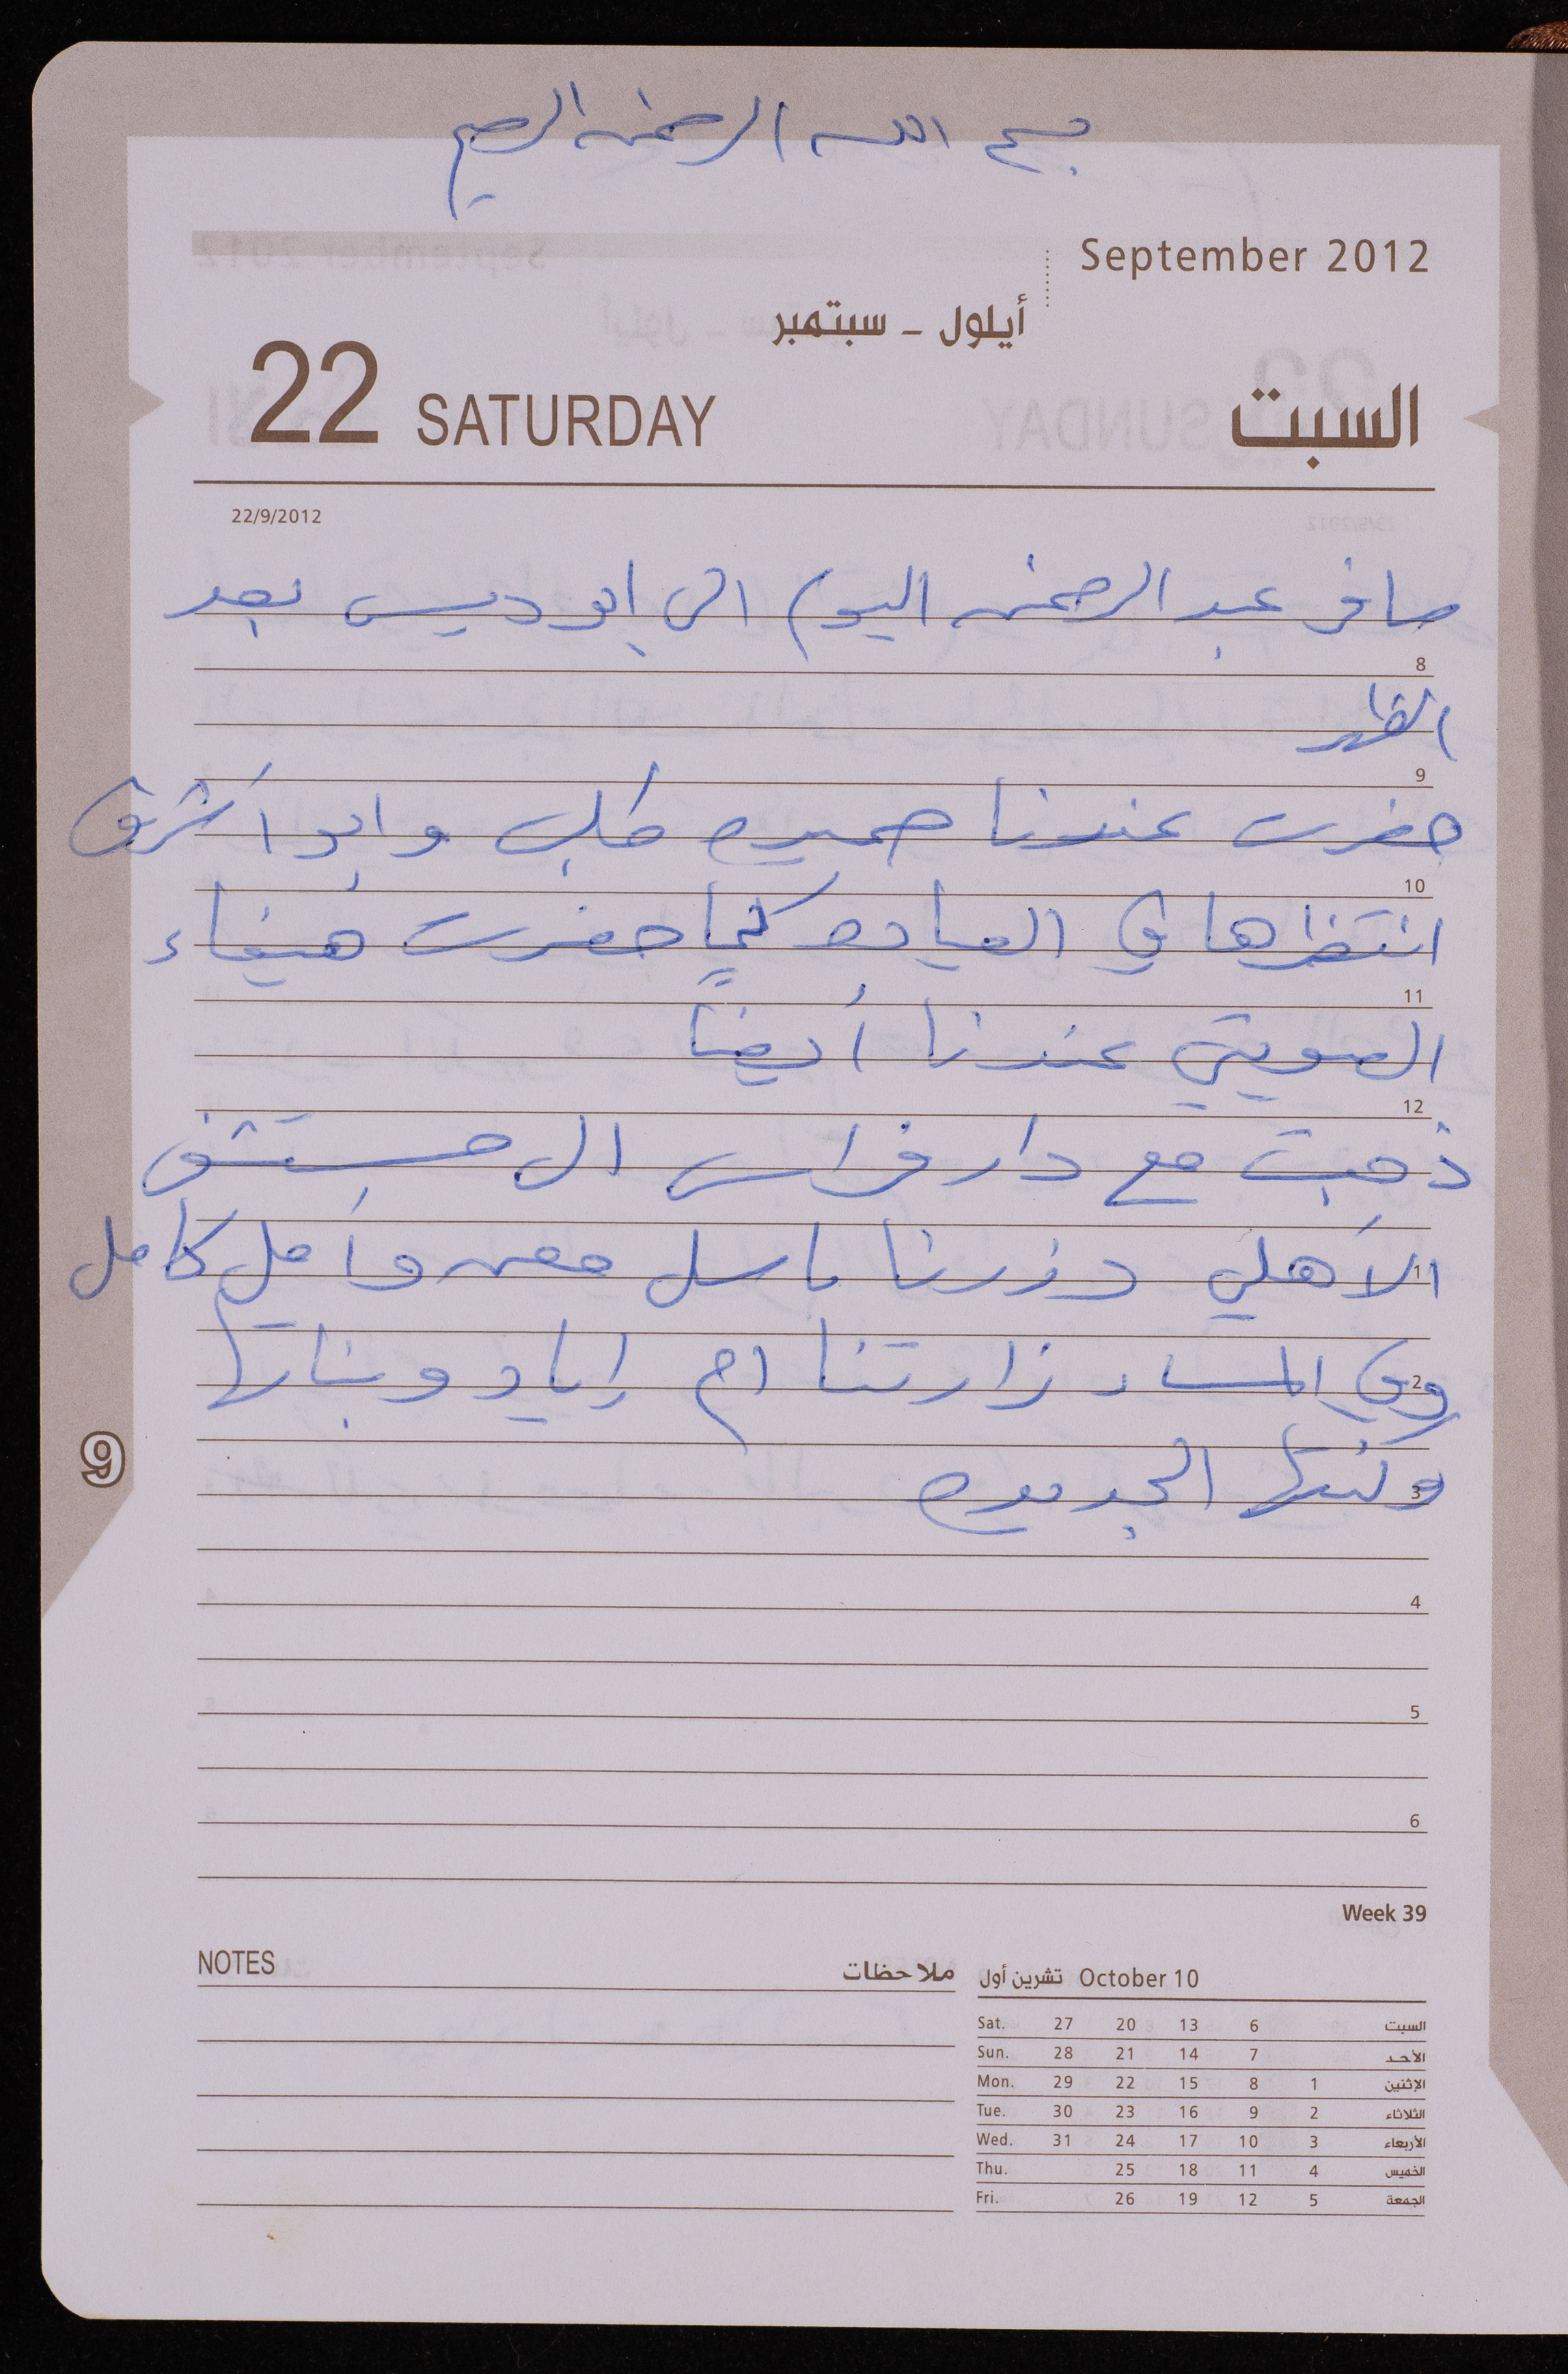 بسم الله الرحمن الرحيم
September 2012
أيلول - سبتمبر
22 SATURDAY السبت
22/9/2012
سافر عبد الرحمن اليوم الى ابو ديس بعد
8
الظهر
9
حضرت عندنا سميره وابو اشرف
10
انتظرها في العياده كما حضرت هيفاء
11
عندنا أيضًا
12
ذهبت مع دار فراس الى مستشفى
1
الأهلي وزرنا باسل وأمل كامل
2
وفي المساء زارتنا ام إياد وبناتها
3
وكنتها الجديده
4
5
6
Week 39
NOTES ملاحظات
October 10 تشرين أول
Sat. 27 20 13 6 السبت
Sun. 28 21 14 7 الأحد
Mon. 29 22 15 8 1 الإثنين
Tue. 30 23 16 9 2 الثلاثاء
Wed. 31 24 17 10 3 الأربعاء
Thu. 25 18 11 4 الخميس
Fri. 26 19 12 5 الجمعة
9